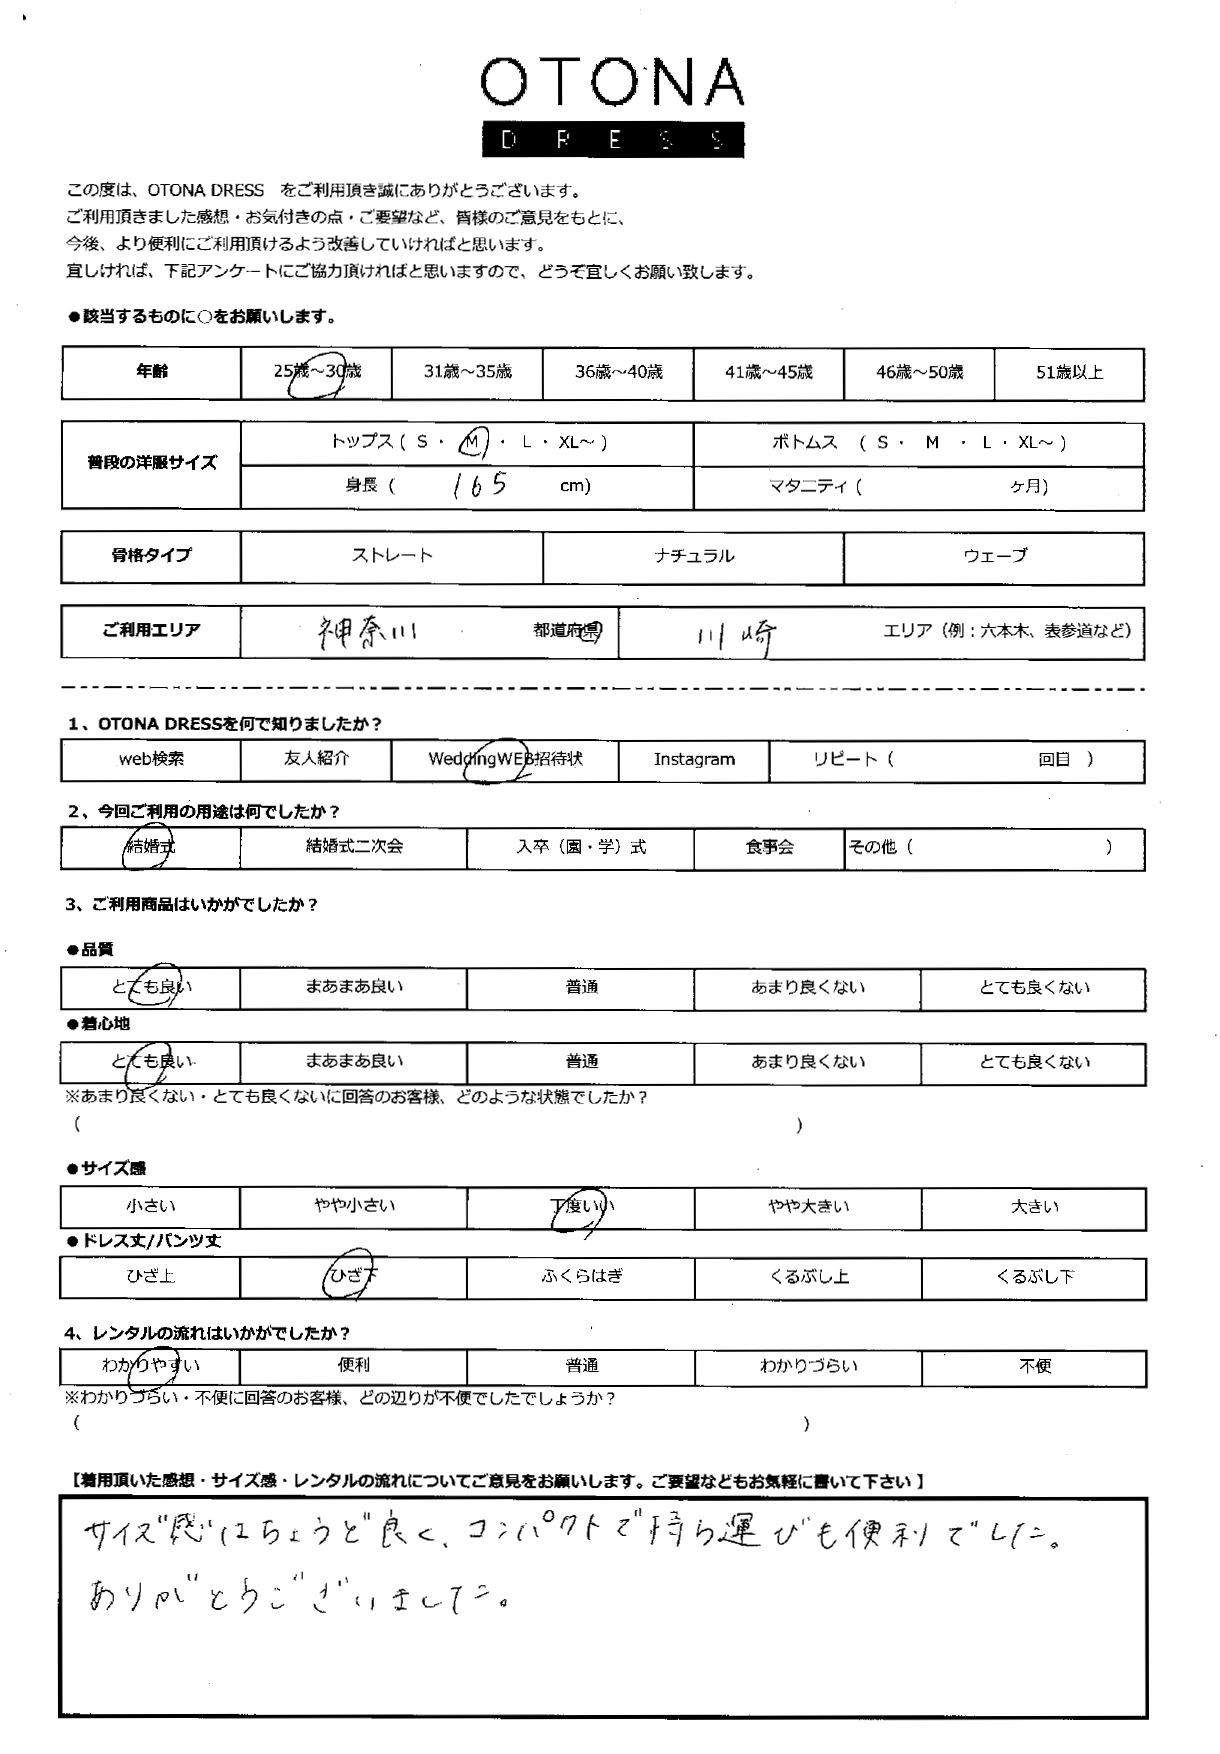 OTONA
DRESS
この度は、OTONA DRESS をご利用頂き誠にありがとうございます。
ご利用頂きました感想・お気付きの点・ご要望など、皆様のご意見をもとに、
今後、より便利にご利用頂けるよう改善していければと思います。
宜しければ、下記アンケートにご協力頂ければと思いますので、どうぞ宜しくお願い致します。
●該当するものに○をお願いします。
年齢 25歳～30歳 31歳～35歳 36歳～40歳 41歳～45歳 46歳～50歳 51歳以上
普段の洋服サイズ トップス ( S ・ M ・ L ・ XL～ ) ボトムス ( S ・ M ・ L ・ XL～ )
身長 ( 165 cm) マタニティ ( ケ月)
骨格タイプ ストレート ナチュラル ウェーブ
ご利用エリア 神奈川 都道府県 川崎 エリア（例：六本木、表参道など）
1、OTONA DRESSを何で知りましたか？
web検索 友人紹介 WeddingWEB招待状 Instagram リピート ( 回目 )
2、今回ご利用の用途は何でしたか？
結婚式 結婚式二次会 入卒（園・学）式 食事会 その他 ( )
3、ご利用商品はいかがでしたか？
●品質
とても良い まあまあ良い 普通 あまり良くない とても良くない
●着心地
とても良い まあまあ良い 普通 あまり良くない とても良くない
※あまり良くない・とても良くないに回答のお客様、どのような状態でしたか？
( )
●サイズ感
小さい やや小さい 丁度いい やや大きい 大きい
●ドレス丈/パンツ丈
ひざ上 ひざ下 ふくらはぎ くるぶし上 くるぶし下
4、レンタルの流れはいかがでしたか？
わかりやすい 便利 普通 わかりづらい 不便
※わかりづらい・不便に回答のお客様、どの辺りが不便でしたでしょうか？
( )
【着用頂いた感想・サイズ感・レンタルの流れについてご意見をお願いします。ご要望などもお気軽に書いて下さい】
サイズ感はちょうど良く、コンパクトで持ち運びも便利でした。
ありがとうございました。